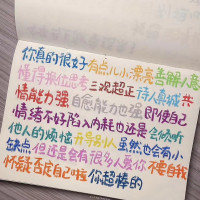 你真的很好 有点儿小漂亮 善解人意
懂得换位思考 三观超正 待人真诚 共
情能力强 自愈能力也强 即使自己
情绪不好陷入内耗也还是会倾听
他人的烦恼 开导别人 虽然也会有小
缺点 但还是会有很多人爱你 不要自我
怀疑否定自己啦 你超棒的